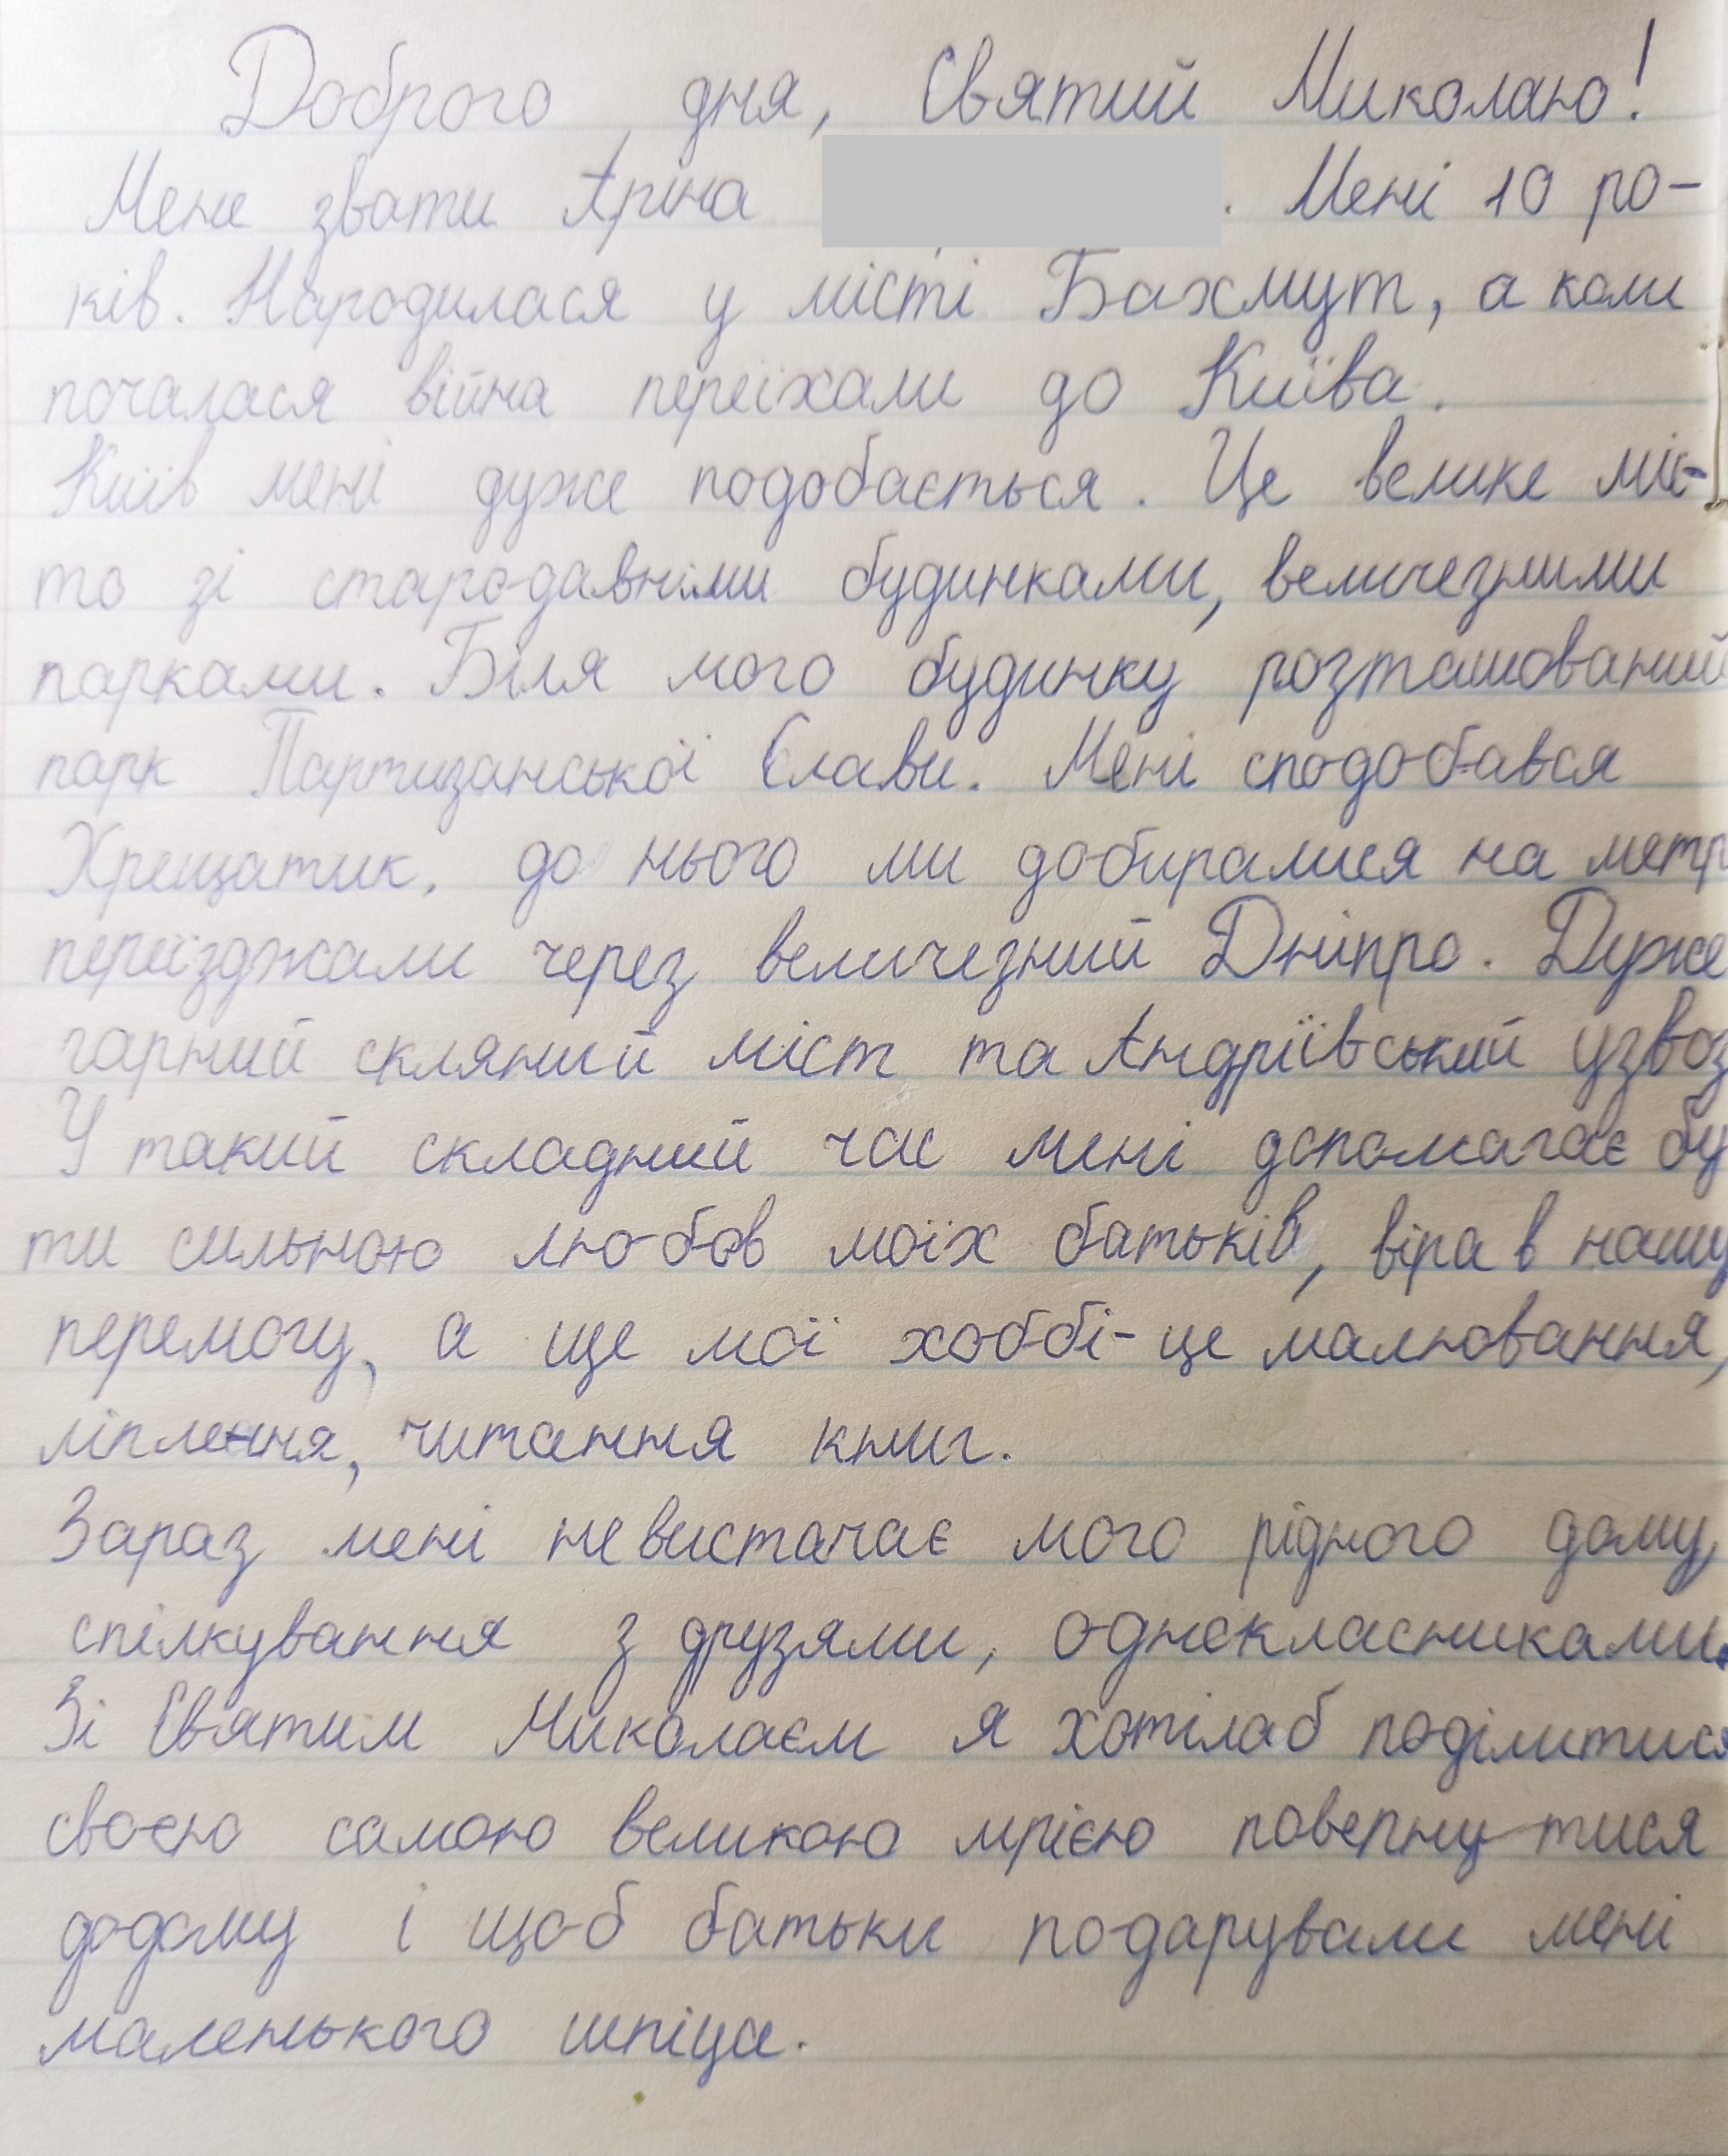 Доброго дня, Святий Миколаю!
Мене звати Аріна . Мені 10 ро-
ків. Народилася у місті Бахмут, а коли
почалася війна переіхали до Київа.
Київ мені дуже подобається. Це велике міс-
то зі стародавніми будинками, величезними
парками. Біля мого будинку розташований
парк Партизанської Слави. Мені сподобався
Хрещатик, до нього ми добиралися на метр
переїзджали через величезний Дніпро. Дуже
гарний скляний міст та Андріївський узвоз
У такий складний час мені допомагає бу
ти сильною любов моїх батьків, віра в нашу
перемогу, а ще мої хоббі - це малювання,
ліплення, читання книг.
Зараз мені невистачає мого рідного дому,
спілкування з друзями, однокласниками.
Зі Святим Миколаєм я хотілаб поділитися
своєю самою великою мрією повернутися
додому і щоб батьки подарували мені
маленького шпіца.